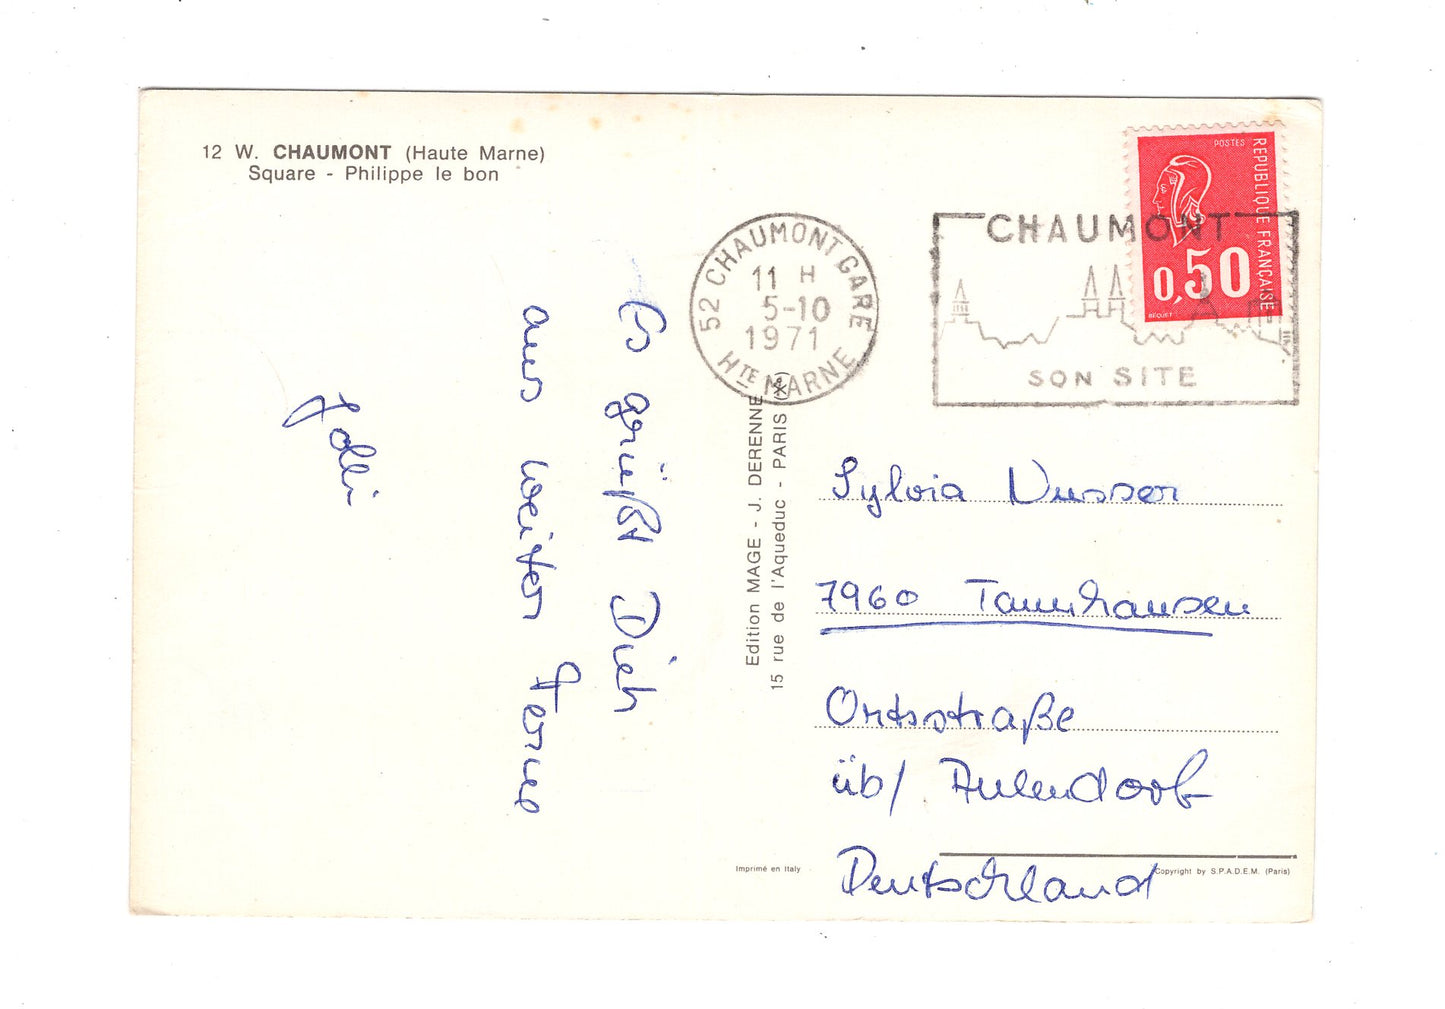 12 W. CHAUMONT (Haute Marne)
Square - Philippe le bon
Es grüßt Dich
aus weiter Ferne
Edition MAGE - J. DERENNE
15 rue de l'Aqueduc - PARIS (Xe)
52 CHAUMONT GARE
11 H
5-10
1971
HTE MARNE
CHAUMONT
SON SITE
POSTES
REPUBLIQUE FRANÇAISE
0,50
BEQUET
Sylvia Nusser
7960 Tannhausen
Ortsstraße
üb/ Aulendorf
Deutschland
Imprimé en Italy
Copyright by S.P.A.D.E.M. (Paris)